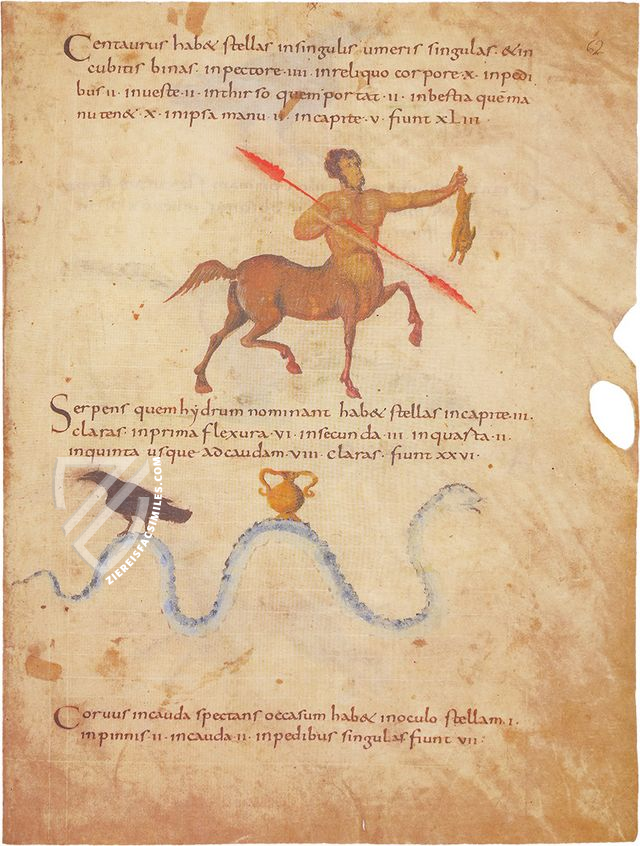 .x.
62
Centaurus hab& stellas insingulis umeris singulas · &in
cubitis binas · inpectore · IIII · inreliquo corpore · x · inpedi
bus · II · investe · II · inthirso quem portat · II · inbestia quē ma
nu ten& · x · inipsa manu · II · incapite · v · fiunt xLIII ·
Serpens quem hydrum nominant hab& stellas incapite · III ·
claras · inprima flexura · VI · insecunda · III · inquarta · II ·
inquinta usque adcaudam · VIII · claras · fiunt xxVI ·
ZIEREISFACSIMILES.COM
Corvus incauda spectans occasum hab& inoculo stellam · I ·
inpinnis · II · incauda · II · inpedibus singulas fiunt VII :